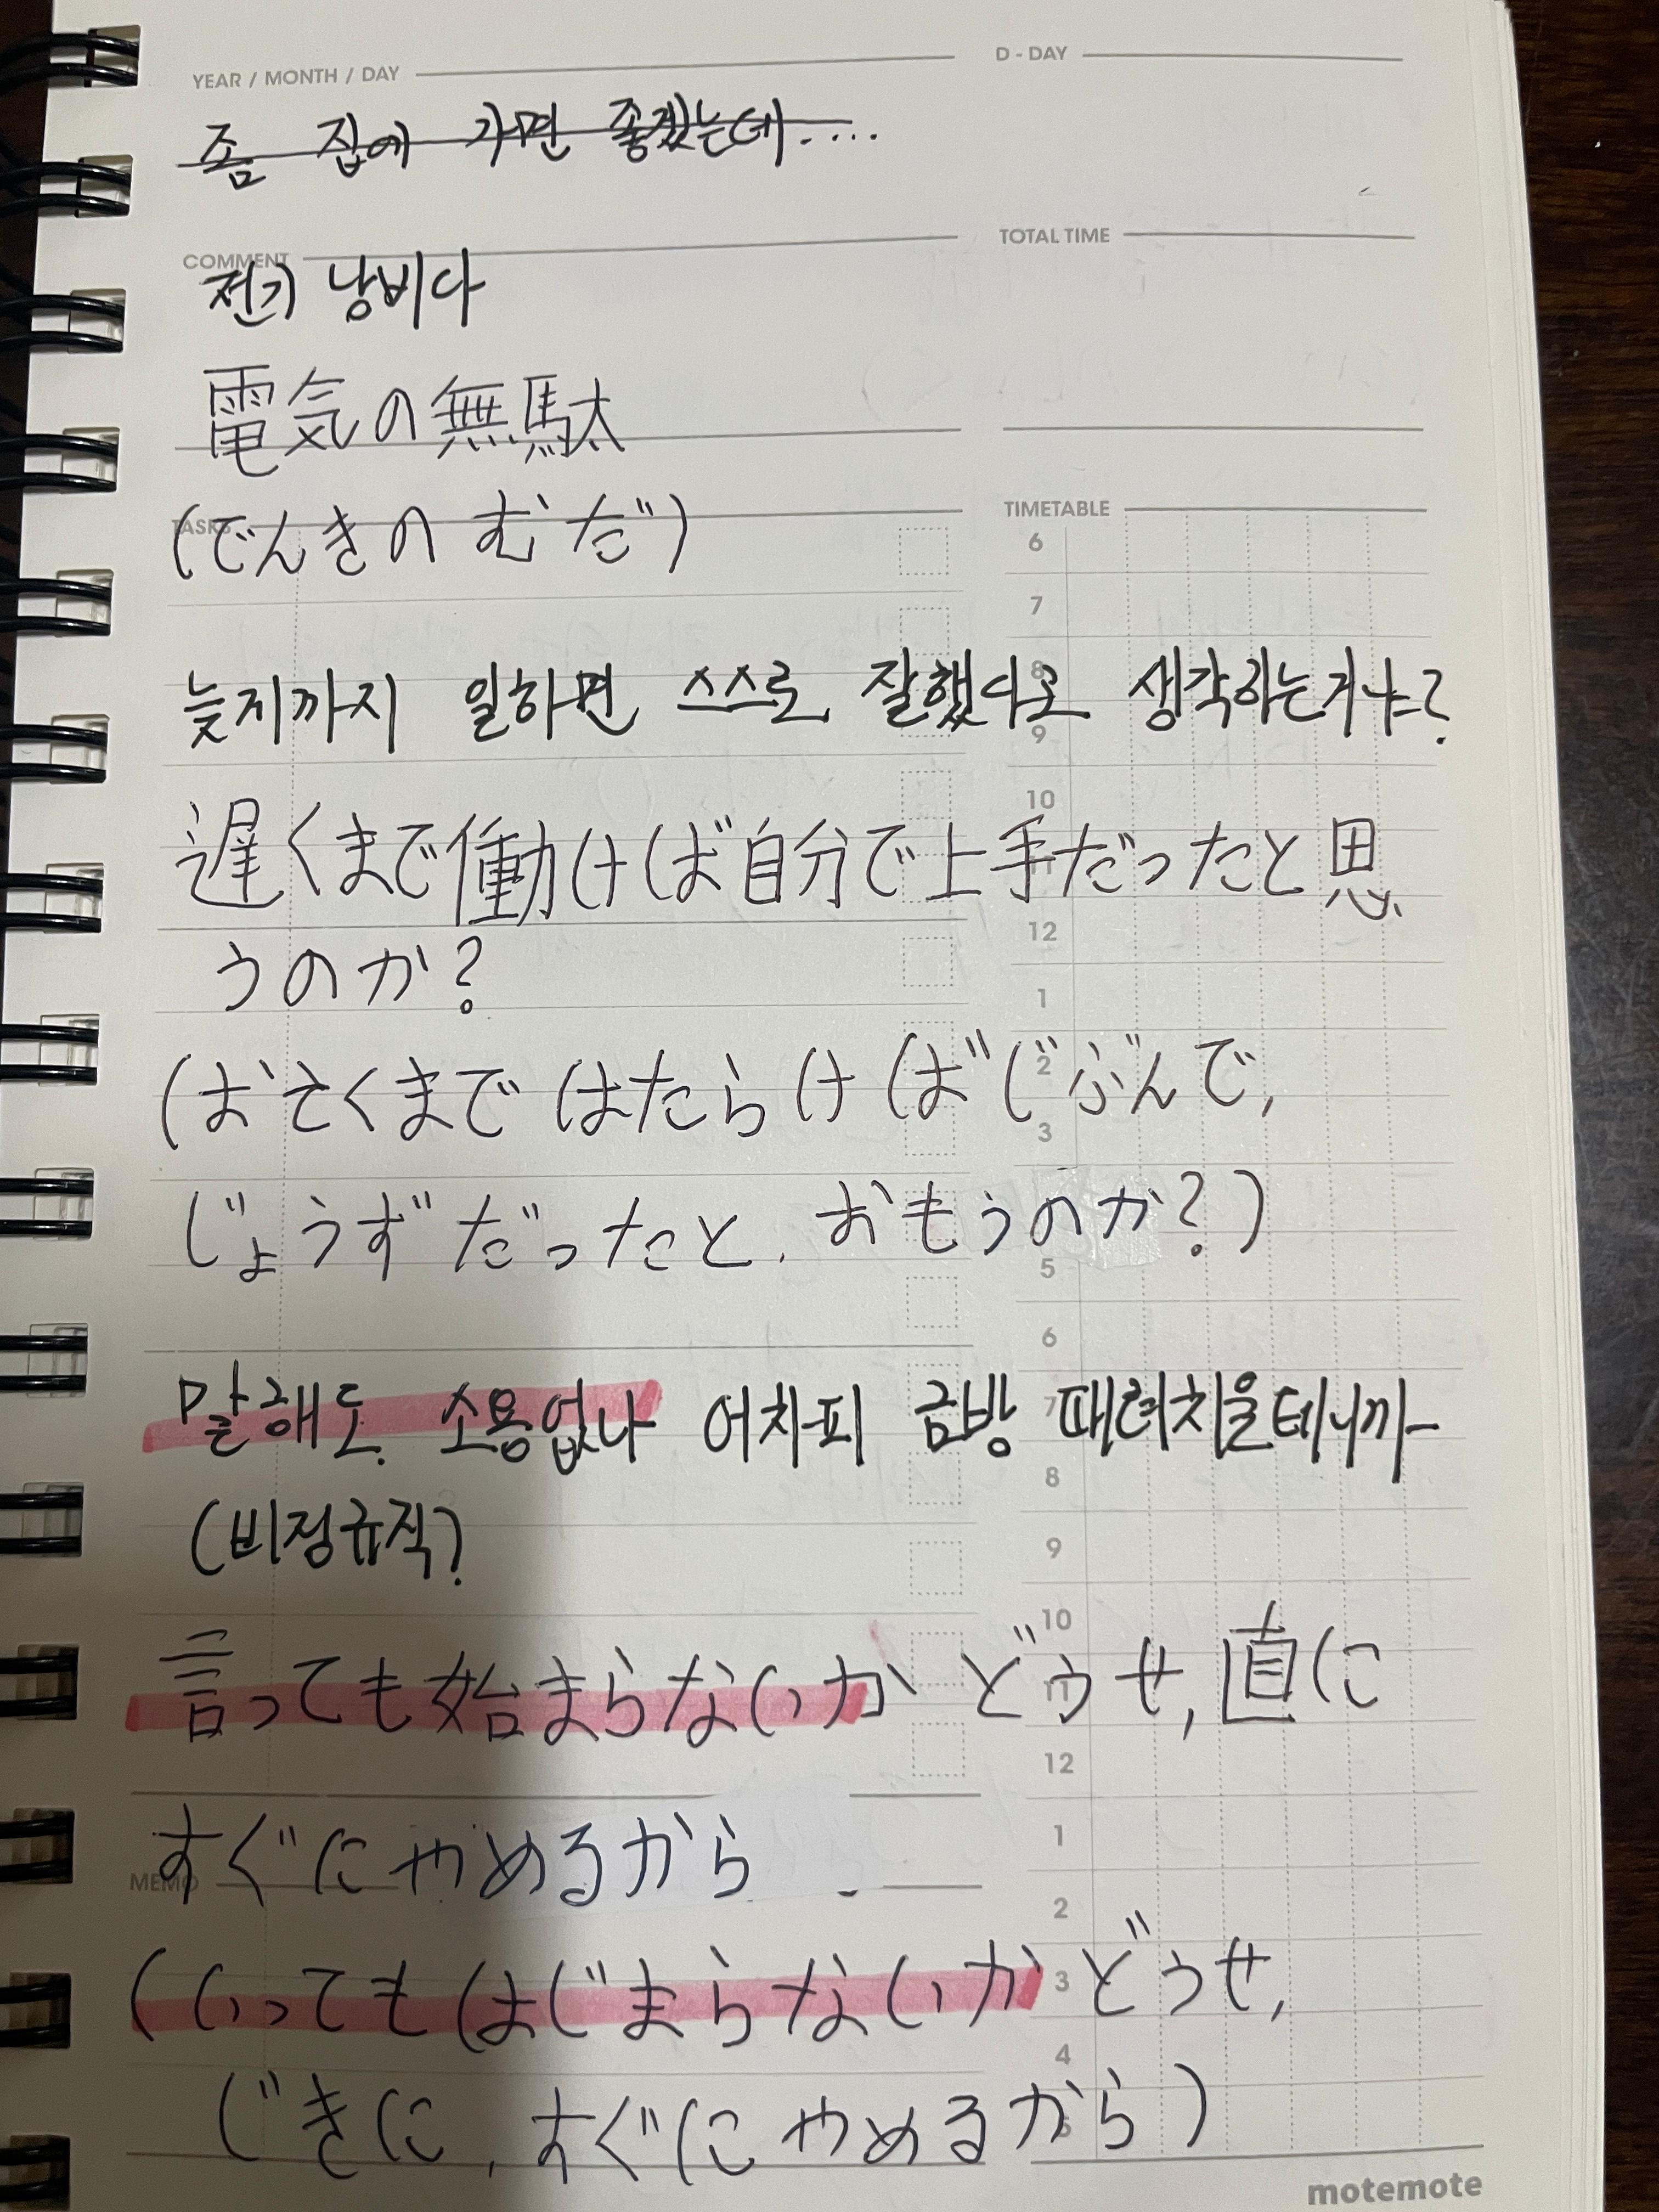 YEAR / MONTH / DAY
D - DAY
좀 집에 가면 좋겠는데....
COMMENT
TOTAL TIME
전기 낭비다
電気の無駄
TASKS
(でんきの むだ)
TIMETABLE
6
7
8
늦지까지 일하면 스스로 잘했다고 생각하는거냐?
9
10
遅くまで働けば自分で上手だったと思
11
12
うのか?
1
(おそくまで はたらけば じぶんで,
2
3
じょうずだったと, おもうのか?)
5
6
말해도 소용없나 어차피 금방 때려치울테니까-
7
8
(비정규직?
9
10
言っても始まらないか どうせ, 直に
11
12
すぐにやめるから
1
MEMO
2
(いっても はじまらないか どうせ,
3
4
じきに, すぐに やめるから)
5
motemote